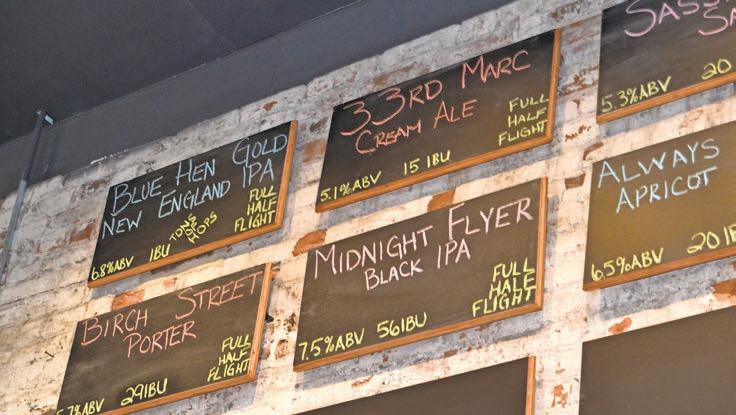 BLUE HEN GOLD
NEW ENGLAND IPA
6.8%ABV
IBU
TONS
OF
HOPS
FULL
HALF
FLIGHT
33RD MARC
CREAM ALE
5.1%ABV
15 IBU
FULL
HALF
FLIGHT
5.3%ABV
20
BIRCH STREET
PORTER
29IBU
FULL
HALF
FLIGHT
MIDNIGHT FLYER
BLACK IPA
7.5%ABV
56IBU
FULL
HALF
FLIGHT
ALWAYS
APRICOT
6.5%ABV
20IB